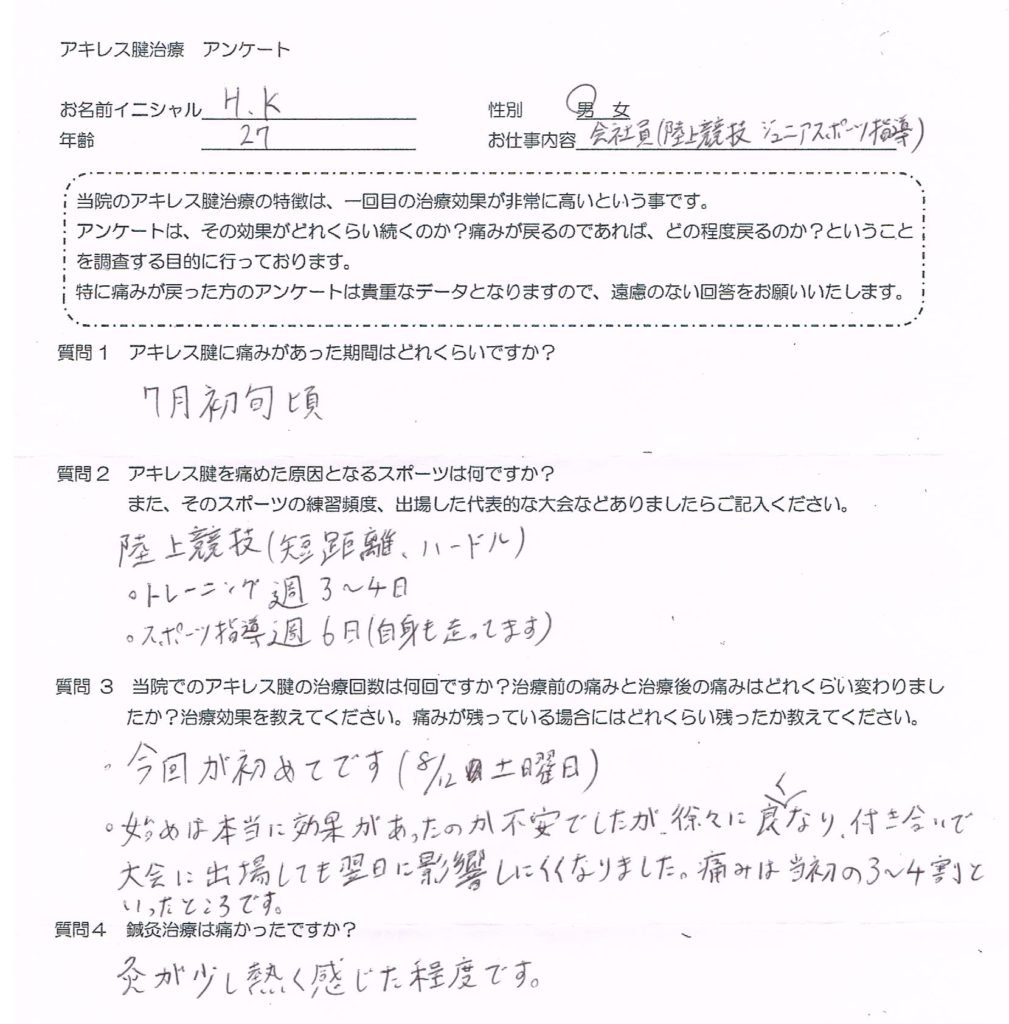 アキレス腱治療　アンケート
お名前イニシャル H.K　性別　男　女
年齢 27　お仕事内容 会社員(陸上競技 ジュニアスポーツ指導)
当院のアキレス腱治療の特徴は、一回目の治療効果が非常に高いという事です。
アンケートは、その効果がどれくらい続くのか？痛みが戻るのであれば、どの程度戻るのか？ということ
を調査する目的に行っております。
特に痛みが戻った方のアンケートは貴重なデータとなりますので、遠慮のない回答をお願いいたします。
質問１　アキレス腱に痛みがあった期間はどれくらいですか？
7月初旬頃
質問２　アキレス腱を痛めた原因となるスポーツは何ですか？
また、そのスポーツの練習頻度、出場した代表的な大会などありましたらご記入ください。
陸上競技(短距離、ハードル)
。トレーニング 週3〜4日
。スポーツ指導 週6日(自身も走ってます)
質問 ３　当院でのアキレス腱の治療回数は何回ですか？治療前の痛みと治療後の痛みはどれくらい変わりまし
たか？治療効果を教えてください。痛みが残っている場合にはどれくらい残ったか教えてください。
。今回が初めてです(8/12 土曜日)
。始めは本当に効果があったのか不安でしたが、徐々に良くなり、付き合いで
大会に出場しても翌日に影響しにくくなりました。痛みは当初の3〜4割と
いったところです。
質問４　鍼灸治療は痛かったですか？
灸が少し熱く感じた程度です。